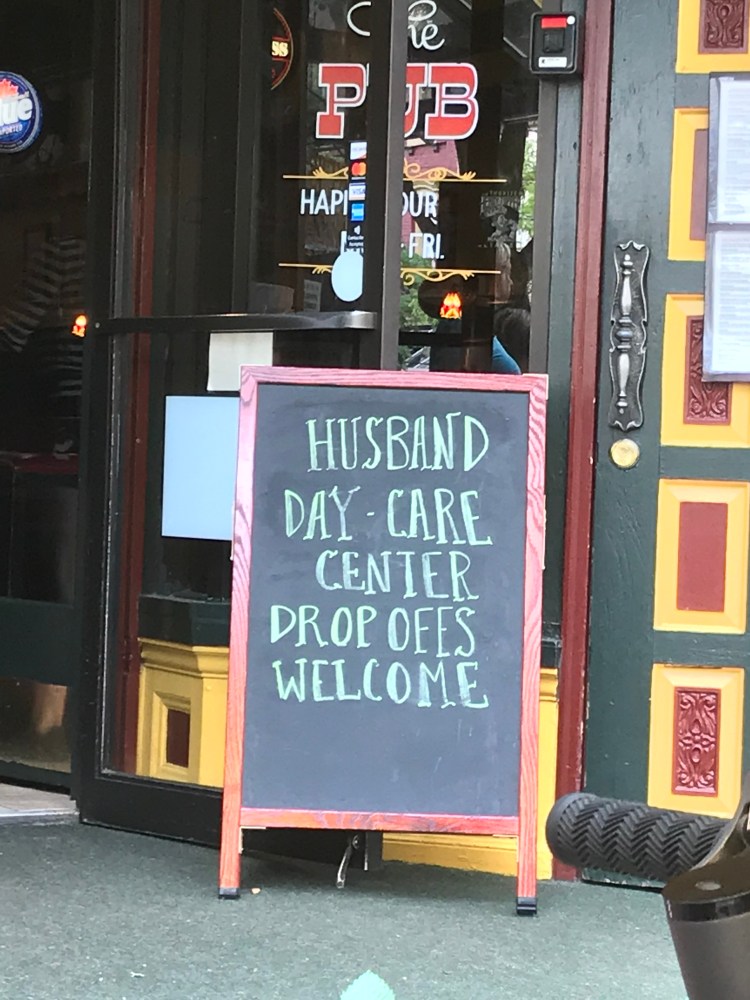 The
PUB
FRI.
VISA
HUSBAND
DAY-CARE
CENTER
DROP OFFS
WELCOME